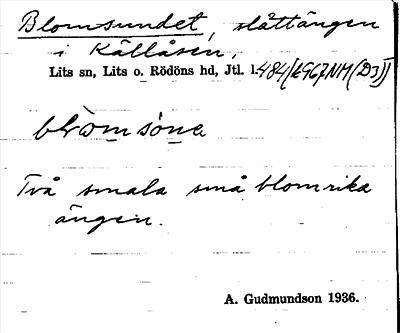 Blomsundet, slåttängen
i Källåsen,
Lits sn, Lits o. Rödöns hd, Jtl.
blòmsö̀ne
Två smala små blomrika
ängen.
A. Gudmundson 1936.